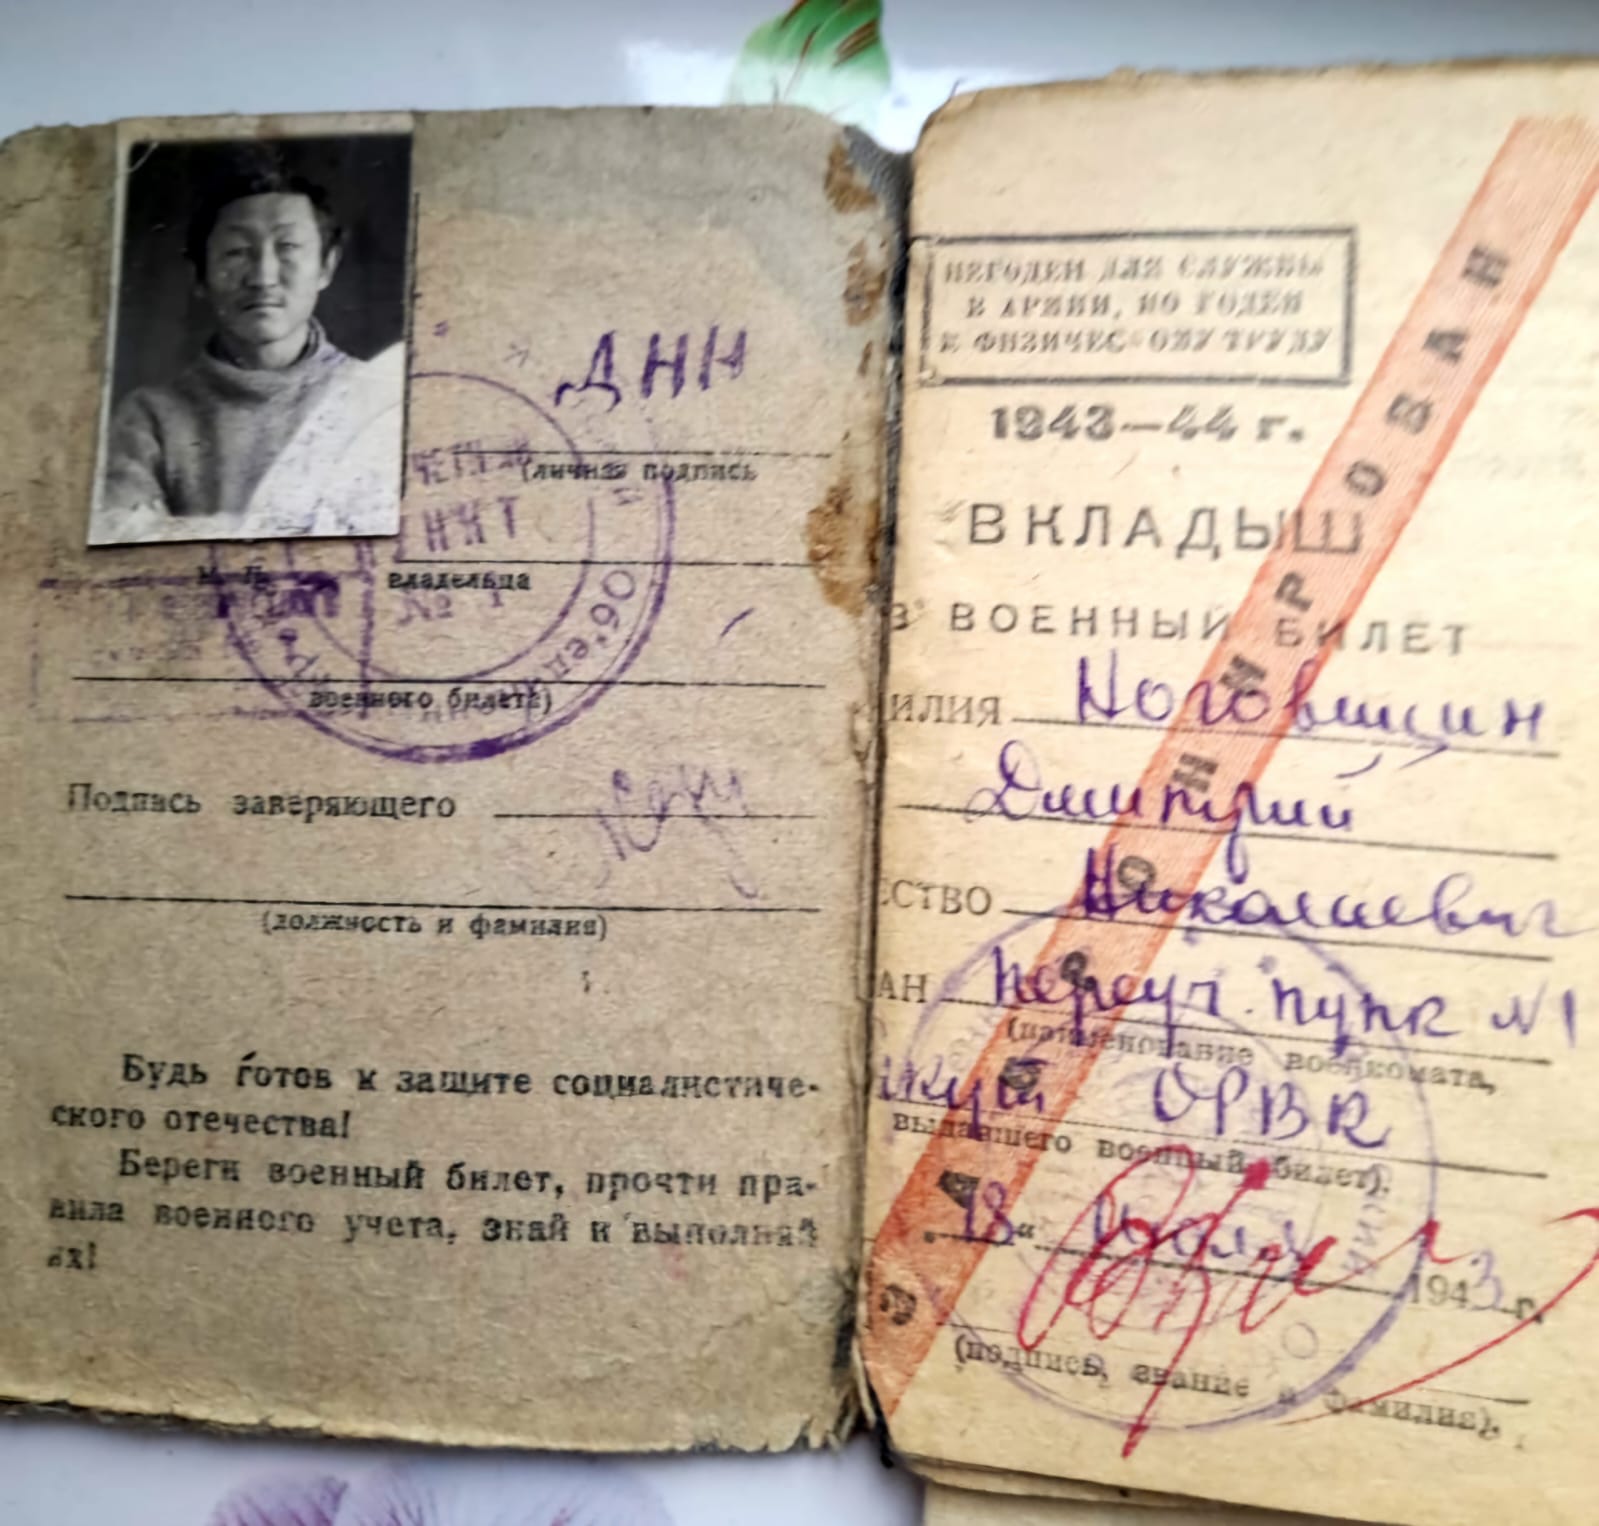 ДНН
(личная подпись
М. П. владельца
№ 1
Об'ед
военного билета)
Подпись заверяющего
(должность и фамилия)
Будь готов к защите социалистиче-
ского отечества!
Береги военный билет, прочти пра-
вила военного учета, знай и выполняй
их!
НЕГОДЕН ДЛЯ СЛУЖБЫ
В АРМИИ, НО ГОДЕН
К ФИЗИЧЕСКОМУ ТРУДУ
1943—44 г.
ВКЛАДЫШ
В ВОЕННЫЙ БИЛЕТ
ИЛИЯ Ноговицин
Дмитрий
ЕСТВО Николаевич
АН Переуч. пунк №1
(наименование военкомата,
ОРВК
выдавшего военный билет).
„18“ Июля 1943 г.
(подпись, звание и фамилия).
ЗАБРОНИРОВАН